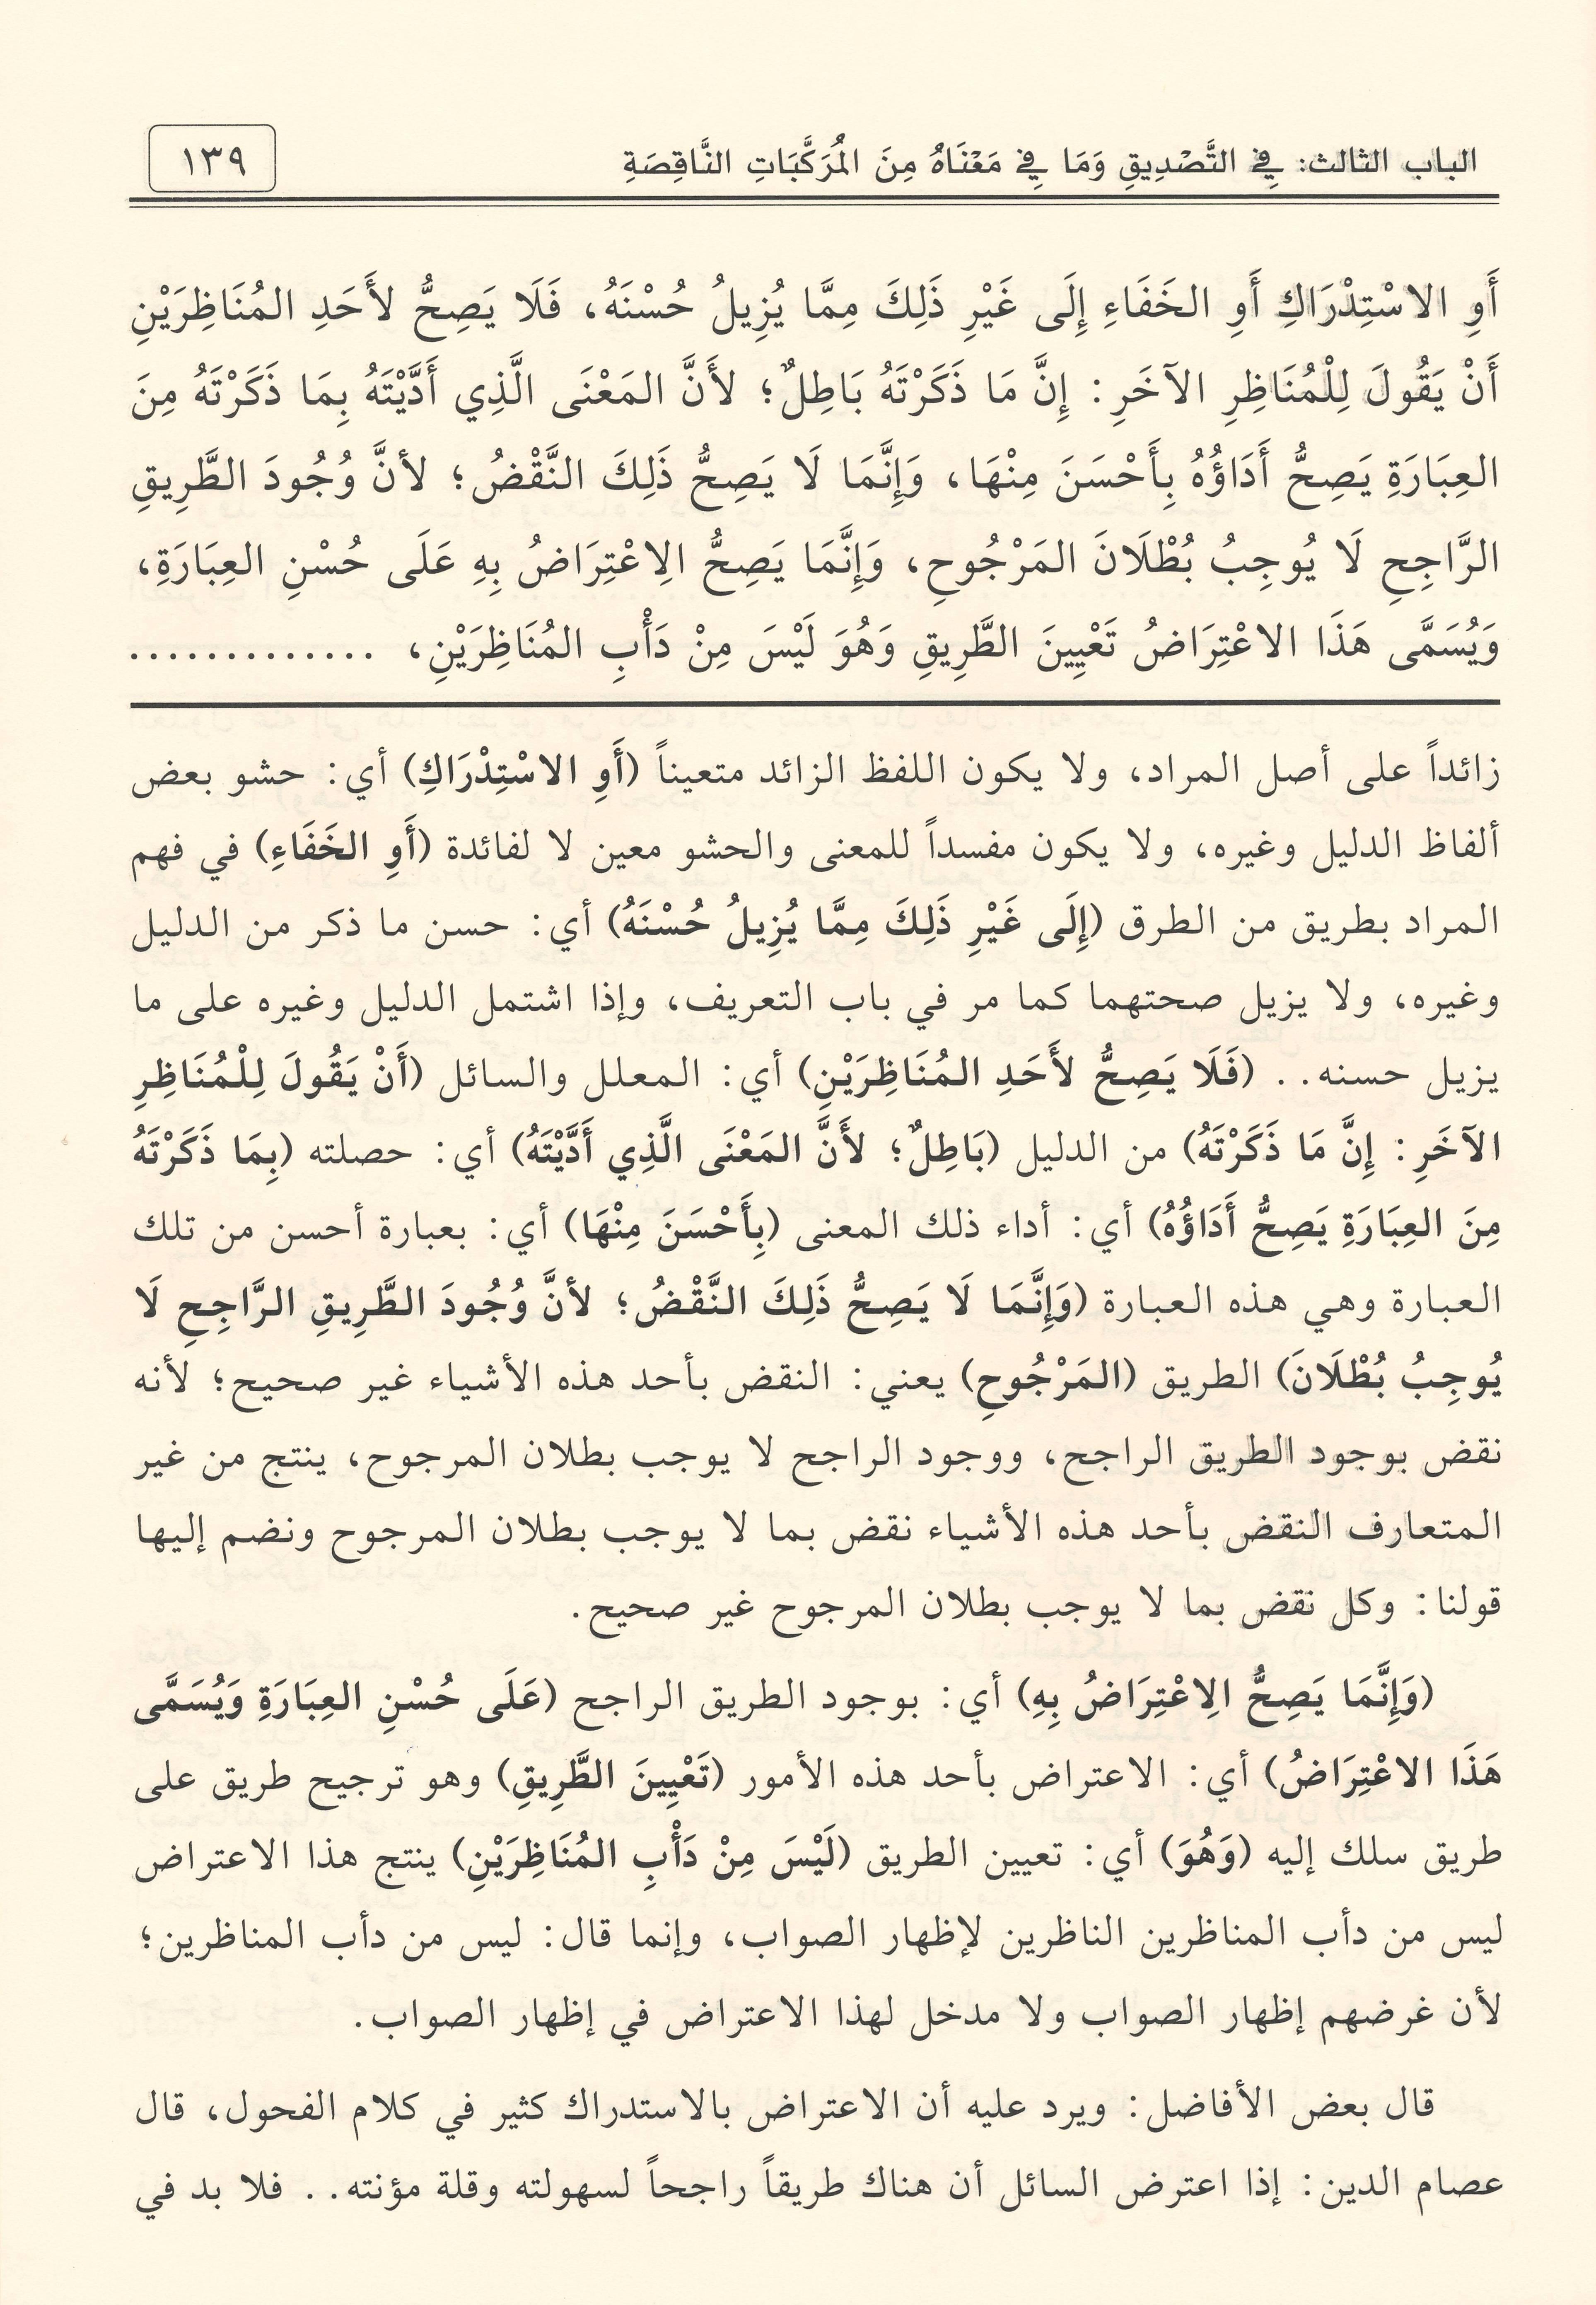 الباب الثالث: فِي التَّصْدِيقِ وَمَا فِي مَعْنَاهُ مِنَ الْمُرَكَّبَاتِ النَّاقِصَةِ
١٣٩
أَوِ الاسْتِدْرَاكِ أَوِ الخَفَاءِ إِلَى غَيْرِ ذَلِكَ مِمَّا يُزِيلُ حُسْنَهُ، فَلَا يَصِحُّ لأَحَدِ المُنَاظِرَيْنِ
أَنْ يَقُولَ لِلْمُنَاظِرِ الآخَرِ: إِنَّ مَا ذَكَرْتَهُ بَاطِلٌ؛ لأَنَّ المَعْنَى الَّذِي أَدَّيْتَهُ بِمَا ذَكَرْتَهُ مِنَ
العِبَارَةِ يَصِحُّ أَدَاؤُهُ بِأَحْسَنَ مِنْهَا، وَإِنَّمَا لَا يَصِحُّ ذَلِكَ النَّقْضُ؛ لأنَّ وُجُودَ الطَّرِيقِ
الرَّاجِحِ لَا يُوجِبُ بُطْلَانَ المَرْجُوحِ، وَإِنَّمَا يَصِحُّ الِاعْتِرَاضُ بِهِ عَلَى حُسْنِ العِبَارَةِ،
وَيُسَمَّى هَذَا الاعْتِرَاضُ تَعْيِينَ الطَّرِيقِ وَهُوَ لَيْسَ مِنْ دَأْبِ المُنَاظِرَيْنِ، .............
زائداً على أصل المراد، ولا يكون اللفظ الزائد متعيناً (أَوِ الاسْتِدْرَاكِ) أي: حشو بعض
ألفاظ الدليل وغيره، ولا يكون مفسداً للمعنى والحشو معين لا لفائدة (أَوِ الخَفَاءِ) في فهم
المراد بطريق من الطرق (إِلَى غَيْرِ ذَلِكَ مِمَّا يُزِيلُ حُسْنَهُ) أي: حسن ما ذكر من الدليل
وغيره، ولا يزيل صحتهما كما مر في باب التعريف، وإذا اشتمل الدليل وغيره على ما
يزيل حسنه.. (فَلَا يَصِحُّ لأَحَدِ المُنَاظِرَيْنِ) أي: المعلل والسائل (أَنْ يَقُولَ لِلْمُنَاظِرِ
الآخَرِ: إِنَّ مَا ذَكَرْتَهُ) من الدليل (بَاطِلٌ؛ لأَنَّ المَعْنَى الَّذِي أَدَّيْتَهُ) أي: حصلته (بِمَا ذَكَرْتَهُ
مِنَ العِبَارَةِ يَصِحُّ أَدَاؤُهُ) أي: أداء ذلك المعنى (بِأَحْسَنَ مِنْهَا) أي: بعبارة أحسن من تلك
العبارة وهي هذه العبارة (وَإِنَّمَا لَا يَصِحُّ ذَلِكَ النَّقْضُ؛ لأنَّ وُجُودَ الطَّرِيقِ الرَّاجِحِ لَا
يُوجِبُ بُطْلَانَ) الطريق (المَرْجُوحِ) يعني: النقض بأحد هذه الأشياء غير صحيح؛ لأنه
نقض بوجود الطريق الراجح، ووجود الراجح لا يوجب بطلان المرجوح، ينتج من غير
المتعارف النقض بأحد هذه الأشياء نقض بما لا يوجب بطلان المرجوح ونضم إليها
قولنا: وكل نقض بما لا يوجب بطلان المرجوح غير صحيح.
(وَإِنَّمَا يَصِحُّ الِاعْتِرَاضُ بِهِ) أي: بوجود الطريق الراجح (عَلَى حُسْنِ العِبَارَةِ وَيُسَمَّى
هَذَا الاعْتِرَاضُ) أي: الاعتراض بأحد هذه الأمور (تَعْيِينَ الطَّرِيقِ) وهو ترجيح طريق على
طريق سلك إليه (وَهُوَ) أي: تعيين الطريق (لَيْسَ مِنْ دَأْبِ المُنَاظِرَيْنِ) ينتج هذا الاعتراض
ليس من دأب المناظرين الناظرين لإظهار الصواب، وإنما قال: ليس من دأب المناظرين؛
لأن غرضهم إظهار الصواب ولا مدخل لهذا الاعتراض في إظهار الصواب.
قال بعض الأفاضل: ويرد عليه أن الاعتراض بالاستدراك كثير في كلام الفحول، قال
عصام الدين: إذا اعترض السائل أن هناك طريقاً راجحاً لسهولته وقلة مؤنته.. فلا بد في